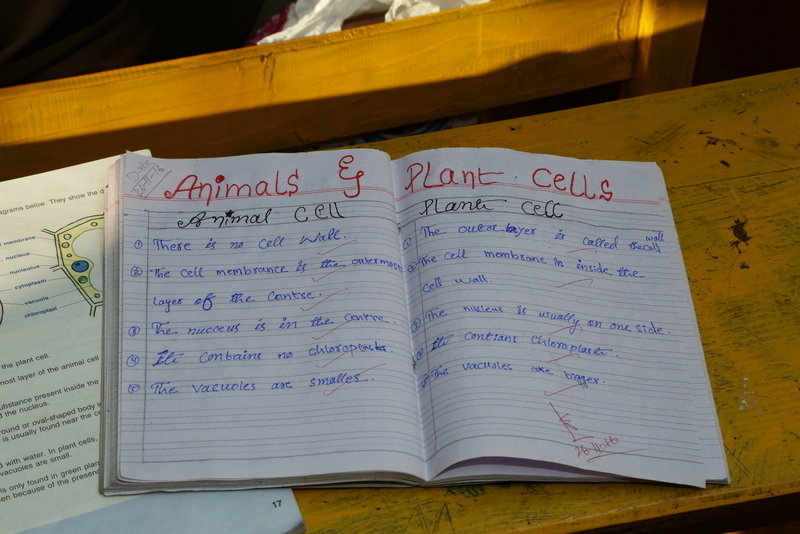 Date
26-11-16
Animals & Plant Cells
Animal Cell
① There is no cell wall.
② The cell membrance is the outermost
layer of the centre.
③ The nucceus is in the centre.
④ It contains no
⑤ The vacuoles are smaller.
Plant Cell
The outer layer is called the cell wall
The cell membrane in inside the
cell wall.
The nucleus is usually on one side.
It contians chloroplast.
The vacuoles are bigger.
26-11-16
agrams below. They show the d
membrane
nucleus
cytoplasm
vacuole
chloroplast
the plant cell.
most layer of the animal cell
ubstance present inside the
d the nucleus.
round or oval-shaped body l
is usually found near the ce
d with water. In plant cells,
vacuoles are small.
is only found in green plan
en because of the presenc
17